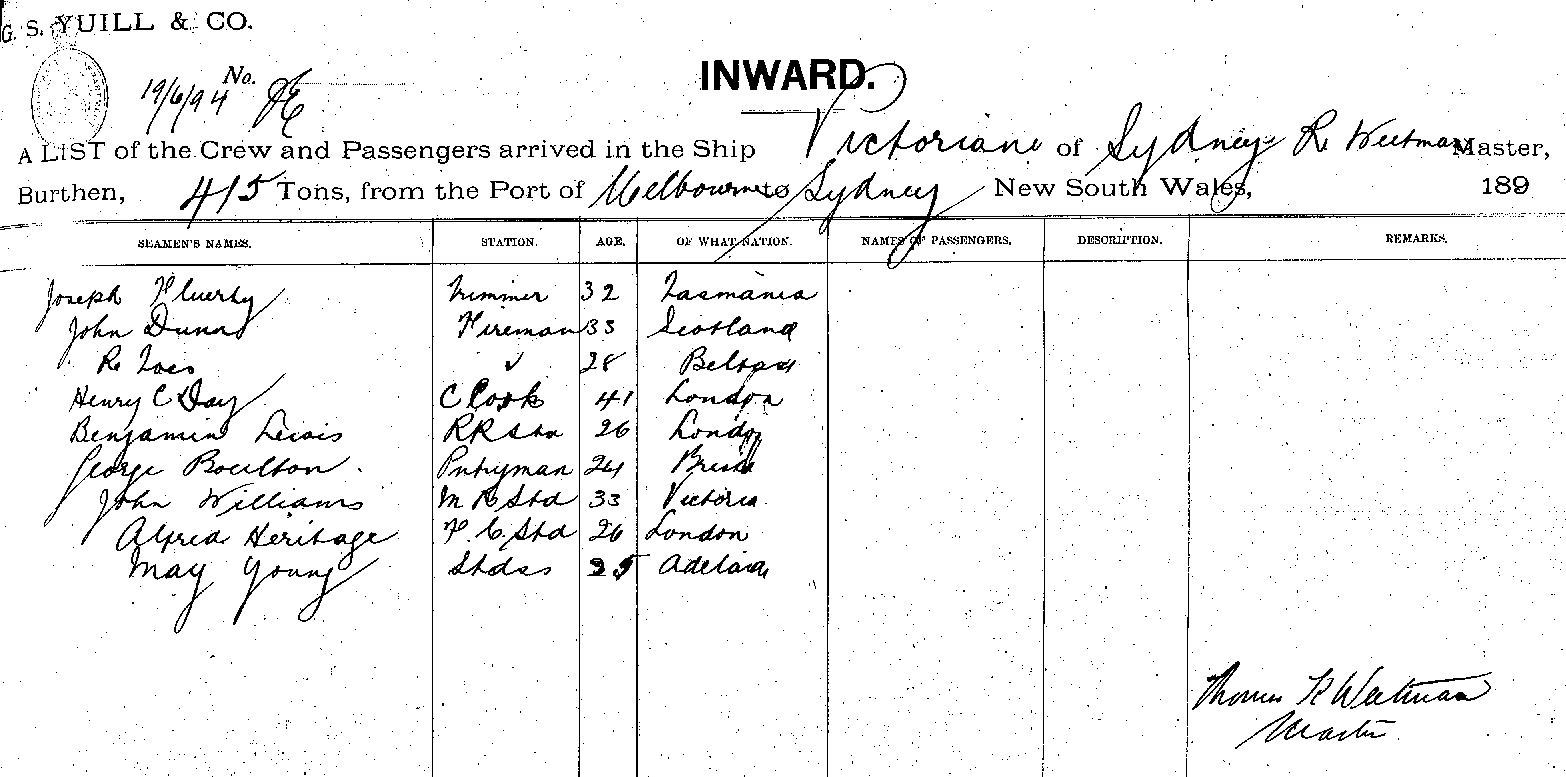 G. S. YUILL & CO.
No.
19/6/94
INWARD.
A LIST of the Crew and Passengers arrived in the Ship Victoriane of Sydney R Weetman Master,
Burthen, 415 Tons, from the Port of Melbourne to Sydney New South Wales, 189
SEAMEN'S NAMES. STATION. AGE. OF WHAT NATION. NAMES OF PASSENGERS. DESCRIPTION. REMARKS.
Joseph Trimmer 32 Tasmania
John Dunn Fireman 33 Scotland
R 28 Belfast
Henry C Day C Cook 41 London
Benjamin Lewis 26 London
George Boulton Pntryman 24
John Williams M R Std 33 Victoria
Alfred Heritage F. C. Std 26 London
May Young Stdss 25 Adelaide
Thomas R Weetman
Master